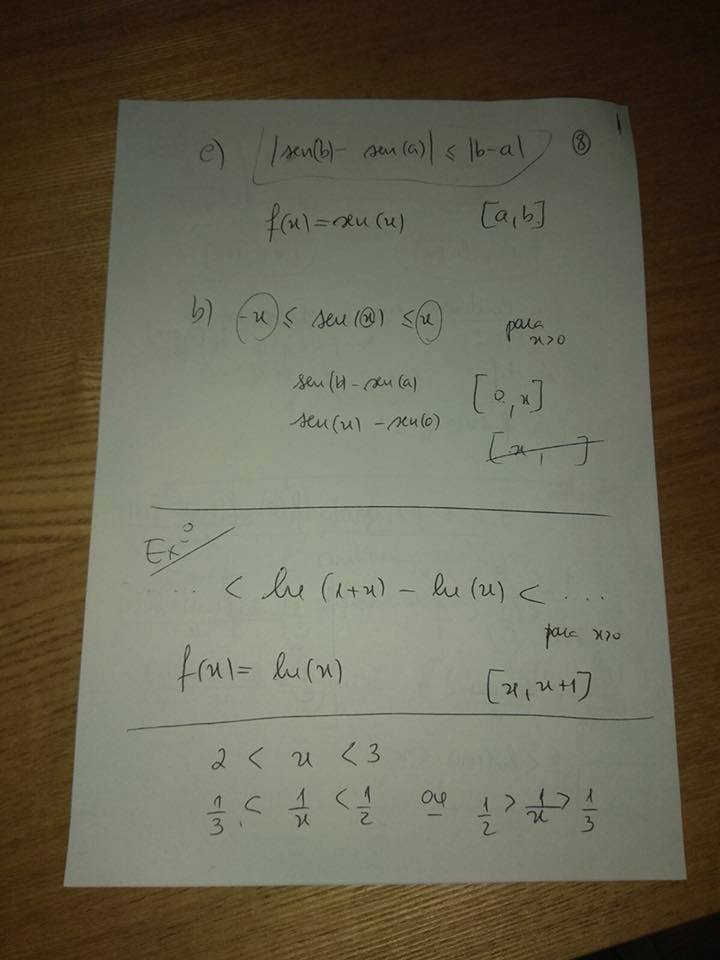 e) |sen(b) - sen(a)| ≤ |b-a| ⑧
f(x) = sen(x) [a, b]
b) -x ≤ sen(x) ≤ x para x>0
sen(b) - sen(a) [0, x]
sen(x) - sen(0)
[x, ]
Exº
..... < ln(1+x) - ln(x) < ...
para x>0
f(x) = ln(x) [x, x+1]
2 < x < 3
1/3 < 1/x < 1/2 ou 1/2 > 1/x > 1/3